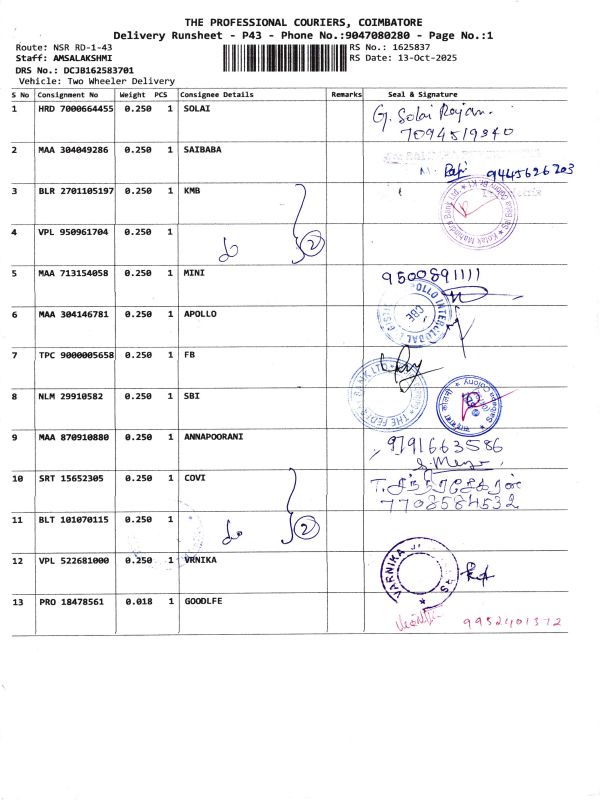 THE PROFESSIONAL COURIERS, COIMBATORE
Delivery Runsheet - P43 - Phone No.:9047080280 - Page No.:1
Route: NSR RD-1-43 RS No.: 1625837
Staff: AMSALAKSHMI RS Date: 13-Oct-2025
DRS No.: DCJB162583701
Vehicle: Two Wheeler Delivery
S No Consignment No Weight PCS Consignee Details Remarks Seal & Signature
1 HRD 7000664455 0.250 1 SOLAI G. Solai Rajan.
7094519340
2 MAA 304049286 0.250 1 SAIBABA
9445626203
3 BLR 2701105197 0.250 1 KMB
Kotak Mahindra
4 VPL 950961704 0.250 1 do 2
5 MAA 713154058 0.250 1 MINI 9500891111
6 MAA 304146781 0.250 1 APOLLO
7 TPC 9000005658 0.250 1 FB
THE FEDERAL BANK LTD
8 NLM 29910582 0.250 1 SBI
Saibaba Colony
9 MAA 870910880 0.250 1 ANNAPOORANI 9791663586
10 SRT 15652305 0.250 1 COVI T. சந்திரசேகரன்
7708584532
11 BLT 101070115 0.250 1 do 2
12 VPL 522681000 0.250 1 VRNIKA
VARNIKA
13 PRO 18478561 0.018 1 GOODLFE
9952401372